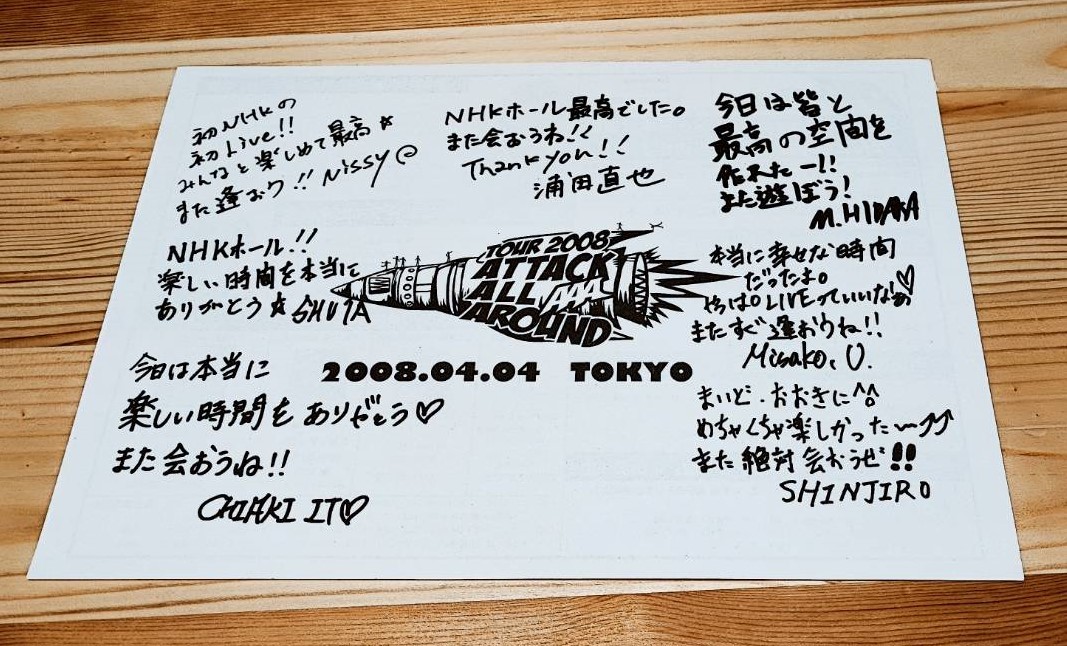 初NHKの
初Live!!
みんなと楽しめて最高☆
また逢おう!! Nissy
NHKホール最高でした。
また会おうね!!
Thank you!!
浦田直也
今日は皆と
最高の空間を
作れたー!!
また遊ぼう!
M.HIDAKA
NHKホール!!
楽しい時間を本当に
ありがとう☆ SHUTA
TOUR 2008
ATTACK
ALL AAA
AROUND
2008.04.04 TOKYO
本当に幸せな時間
だったよ。
やっぱLIVEっていいなぁ♡
またすぐ逢おうね!!
Misako.U.
今日は本当に
楽しい時間を ありがとう♡
また会おうね!!
CHIAKI ITO♡
まいど.おおきに^^
めちゃくちゃ楽しかった〜⤴⤴
また絶対会おうぜ!!
SHINJIRO